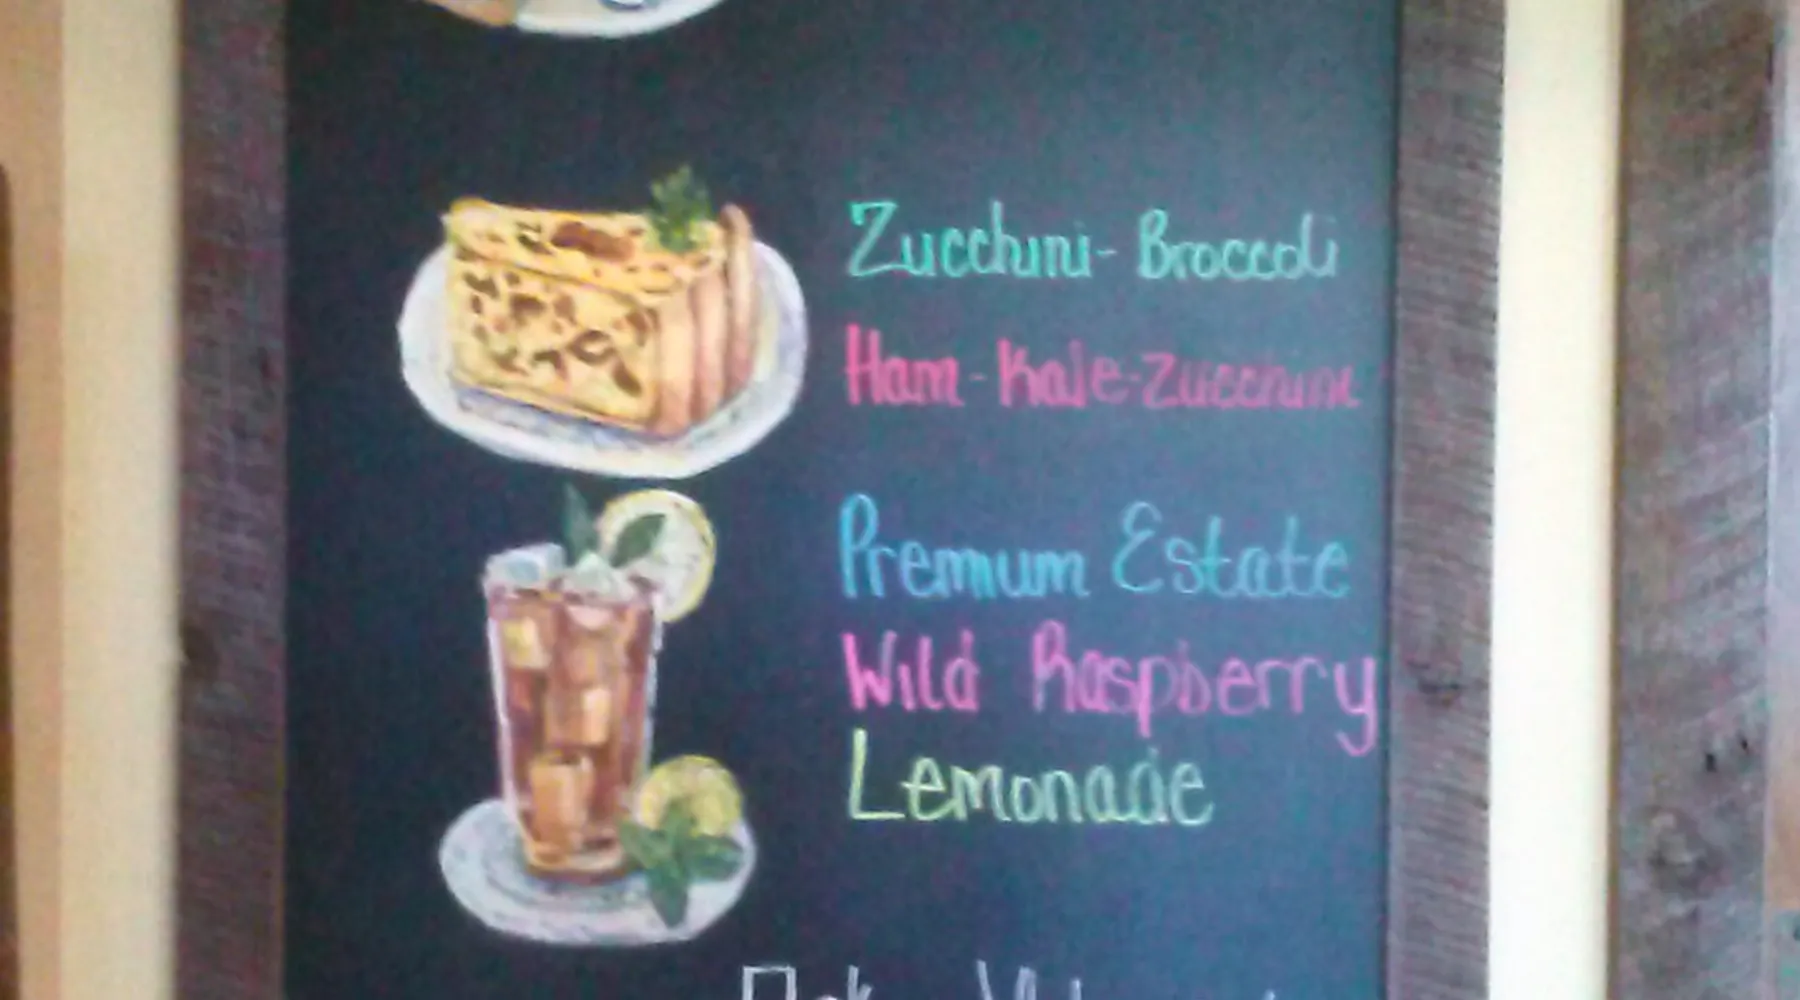 Zucchini-Broccoli
Ham-Kale-Zucchini
Premium Estate
Wild Raspberry
Lemonade